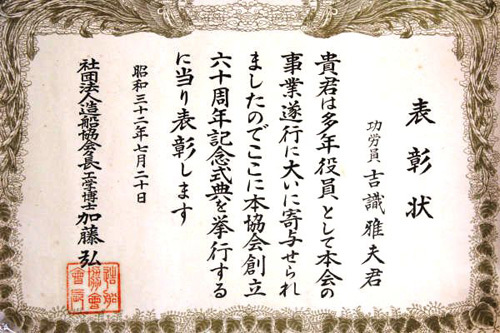 表彰状
功労員 吉識雅夫君
貴君は多年役員として本会の
事業遂行に大いに寄与せられ
ましたのでここに本協会創立
六十周年記念式典を挙行する
に当り表彰します
昭和三十二年七月二十日
社団法人造船協会会長 工学博士 加藤弘
造船
協會
會長